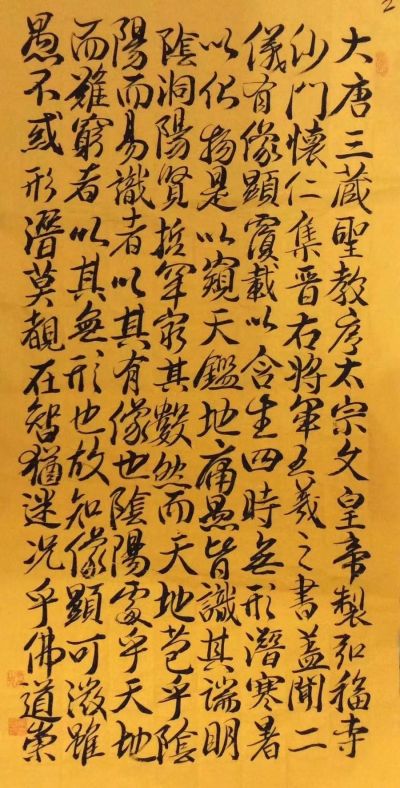 大唐三藏聖教序太宗文皇帝製弘福寺
沙門懷仁集晉右將軍王羲之書蓋聞二
儀有像顯覆載以含生四時無形潛寒暑
以化物是以窺天鑑地庸愚皆識其端明
陰洞陽賢哲罕窮其數然而天地苞乎陰
陽而易識者以其有像也陰陽處乎天地
而難窮者以其無形也故知像顯可徵雖
愚不惑形潛莫覩在智猶迷況乎佛道崇